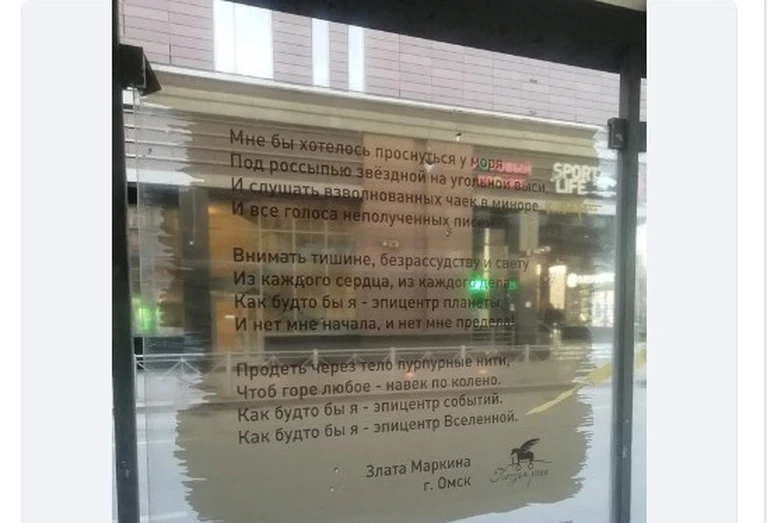 Мне бы хотелось проснуться у моря
Под россыпью звёздной на угольной выси,
И слушать взволнованных чаек в миноре
И все голоса неполученных писем.
Внимать тишине, безрассудству и свету
Из каждого сердца, из каждого дела.
Как будто бы я - эпицентр планеты,
И нет мне начала, и нет мне предела!
Продеть через тело пурпурные нити,
Чтоб горе любое - навек по колено.
Как будто бы я - эпицентр событий.
Как будто бы я - эпицентр Вселенной.
Злата Маркина
г. Омск
SPORT
LIFE